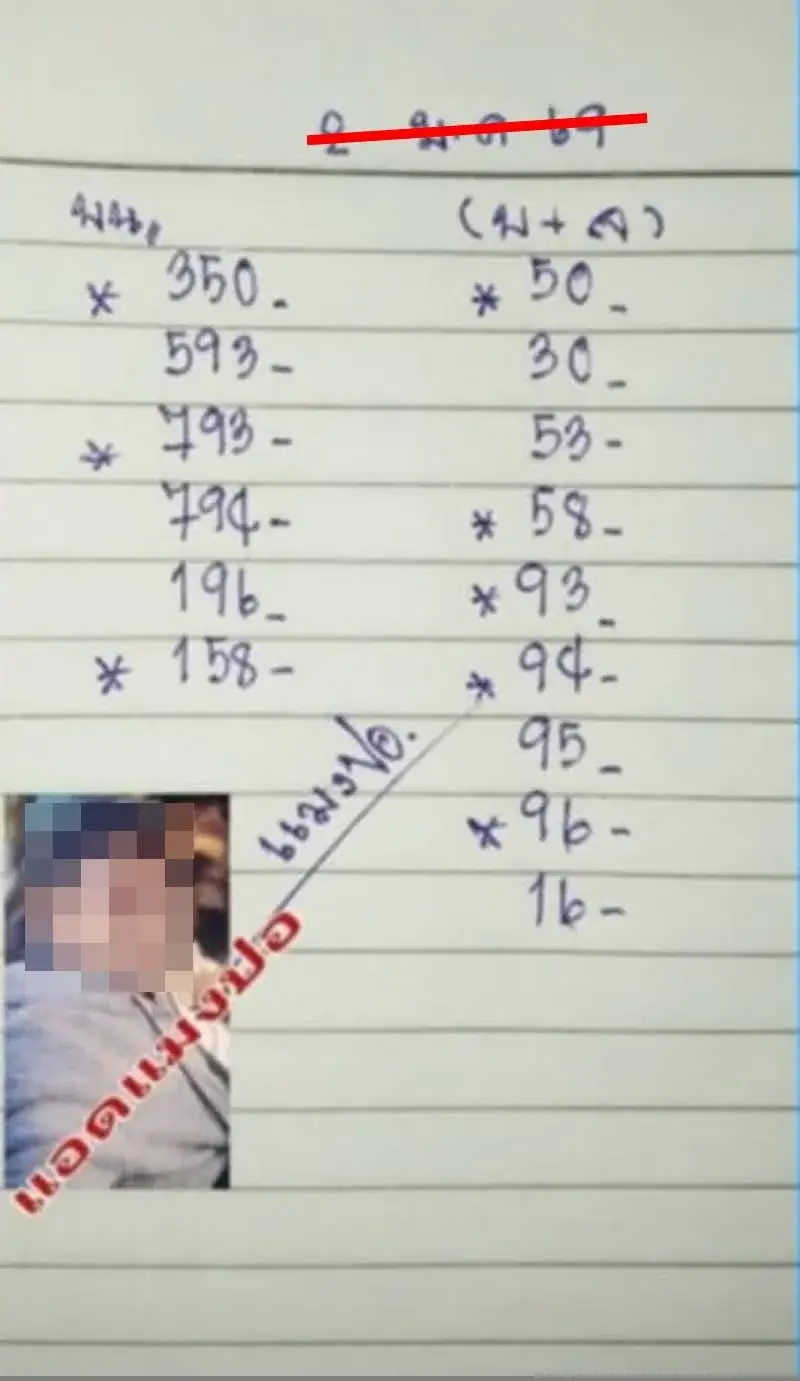 2 ม.ค 69
บน,, (บ+ล)
* 350 - * 50 -
593 - 30 -
* 793 - 53 -
794 - * 58 -
196 - * 93 -
* 158 - * 94 -
95 -
* 96 -
16 -
แมงปอ.
แอดแมงปอ